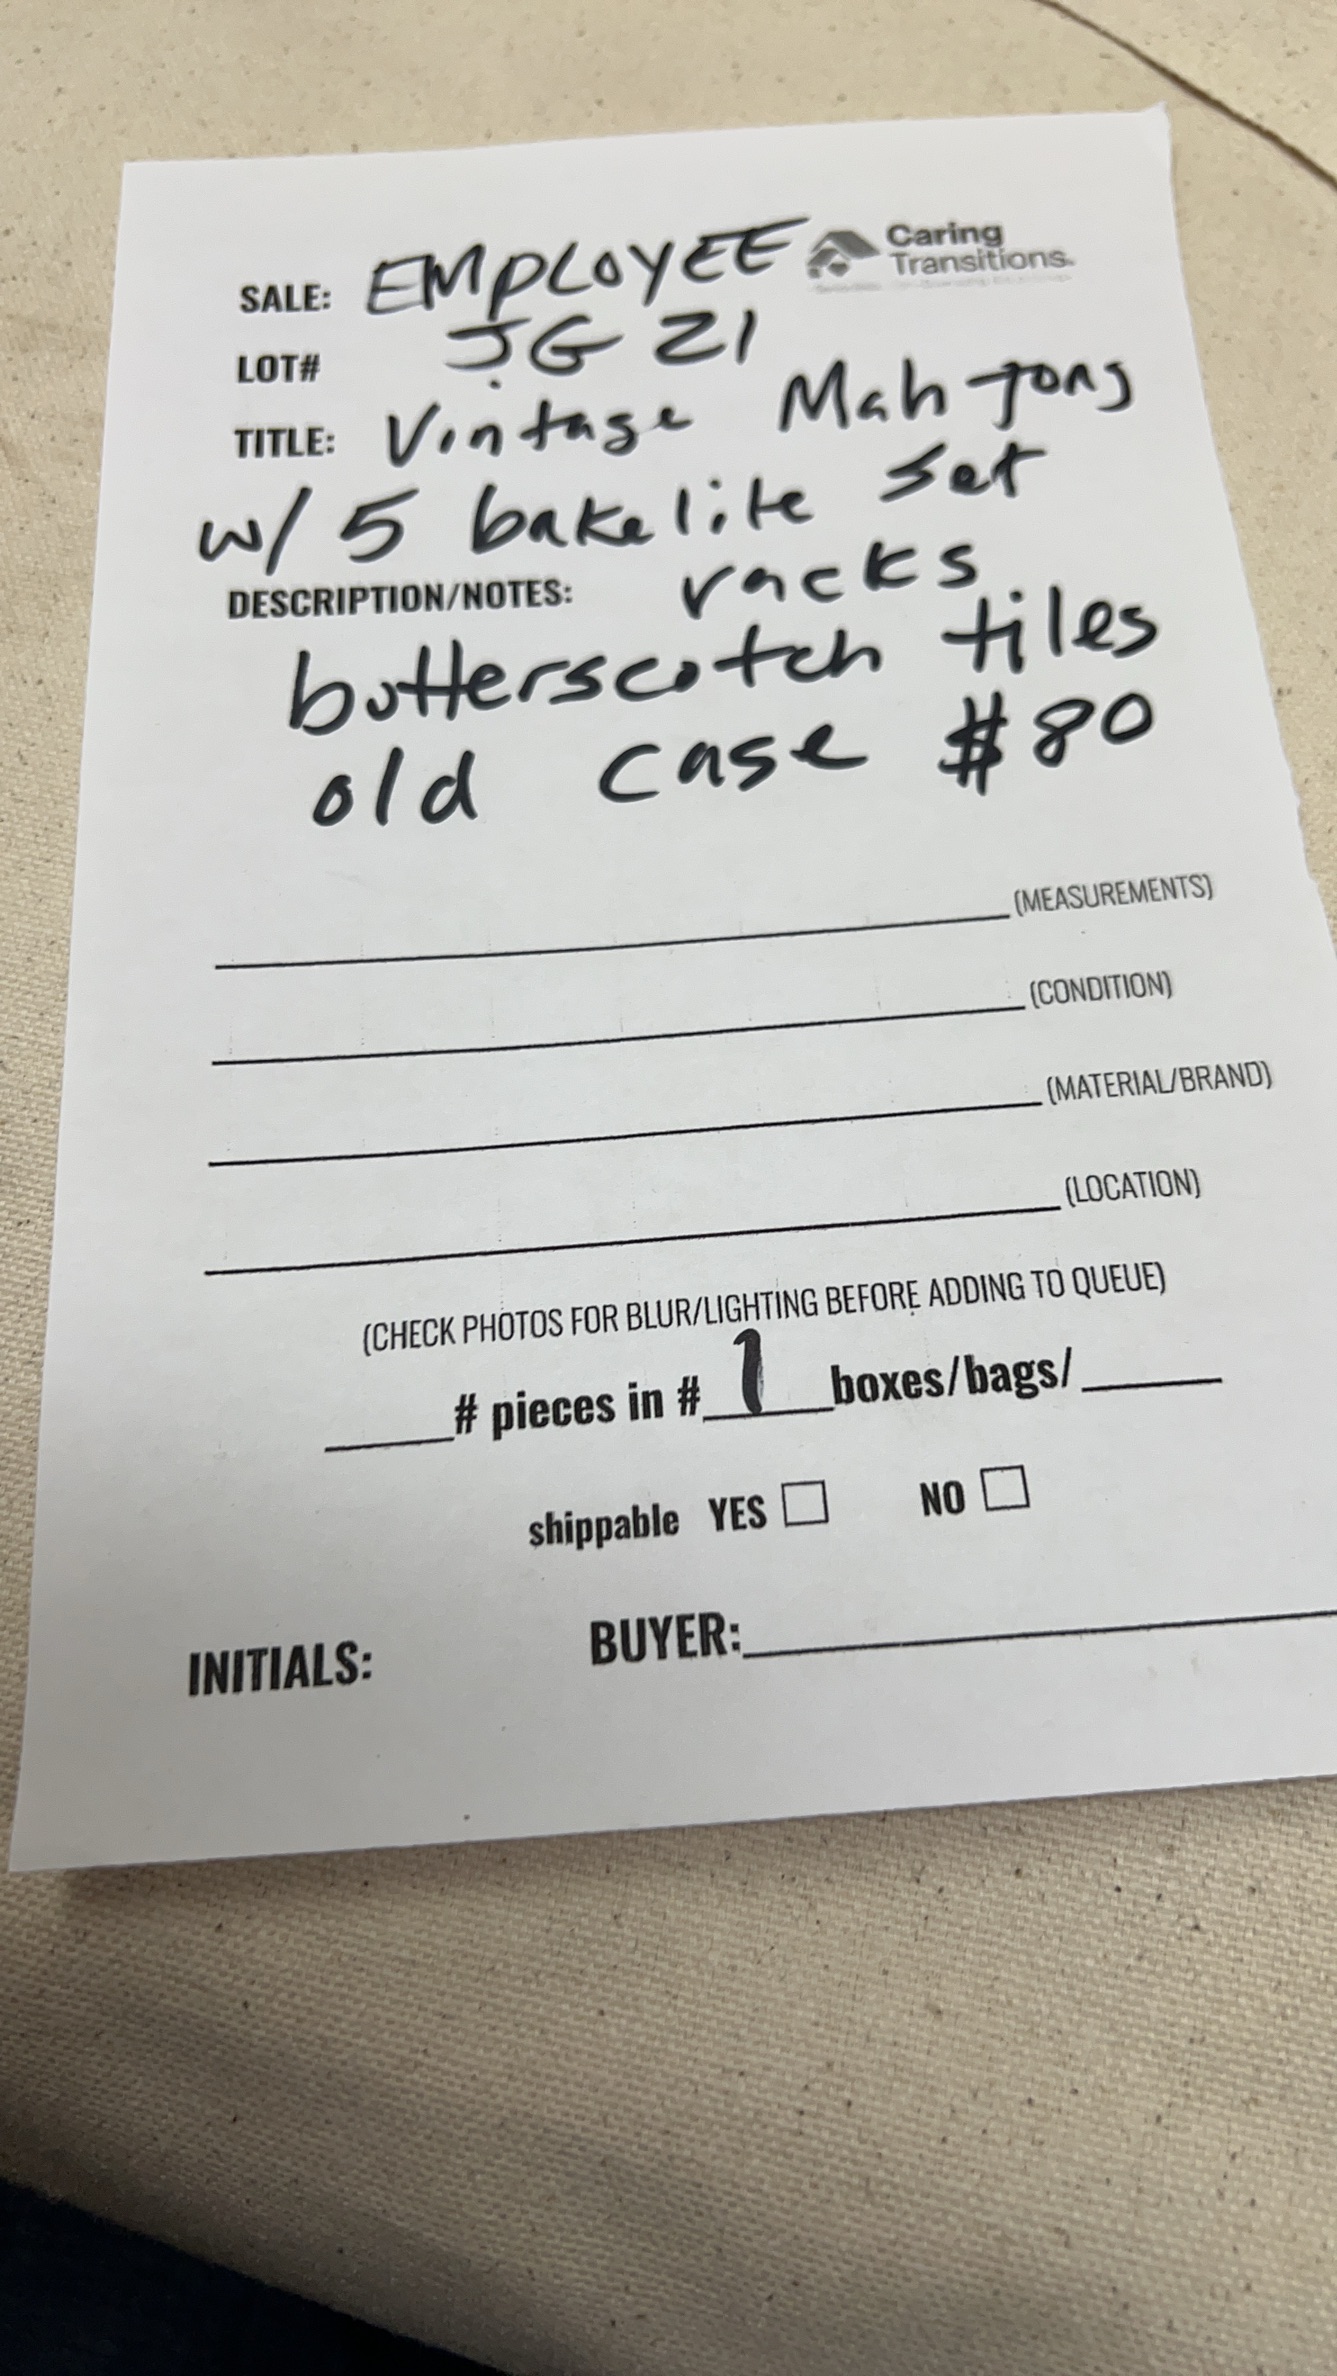 SALE: EMPLOYEE Caring Transitions
LOT# JG 21
TITLE: Vintage Mah Jong
w/ 5 bakelite set
DESCRIPTION/NOTES: racks
butterscotch tiles
old case $80
(MEASUREMENTS)
(CONDITION)
(MATERIAL/BRAND)
(LOCATION)
(CHECK PHOTOS FOR BLUR/LIGHTING BEFORE ADDING TO QUEUE)
# pieces in # 1 boxes/bags/
shippable YES NO
INITIALS: BUYER: